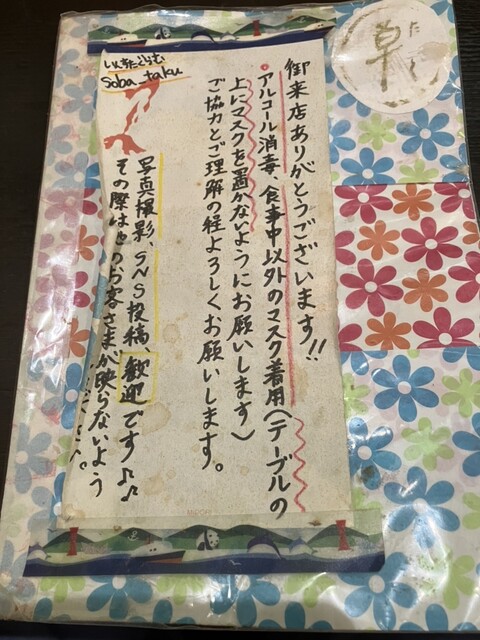 御来店ありがとうございます!!
・アルコール消毒、食事中以外のマスク着用(テーブルの
上にマスクを置かないようにお願いします)
ご協力とご理解の程よろしくお願いします。
写真撮影、SNS投稿、歓迎です♪♪
その際は他のお客さまが映らないよう
Soba taku
草
たく